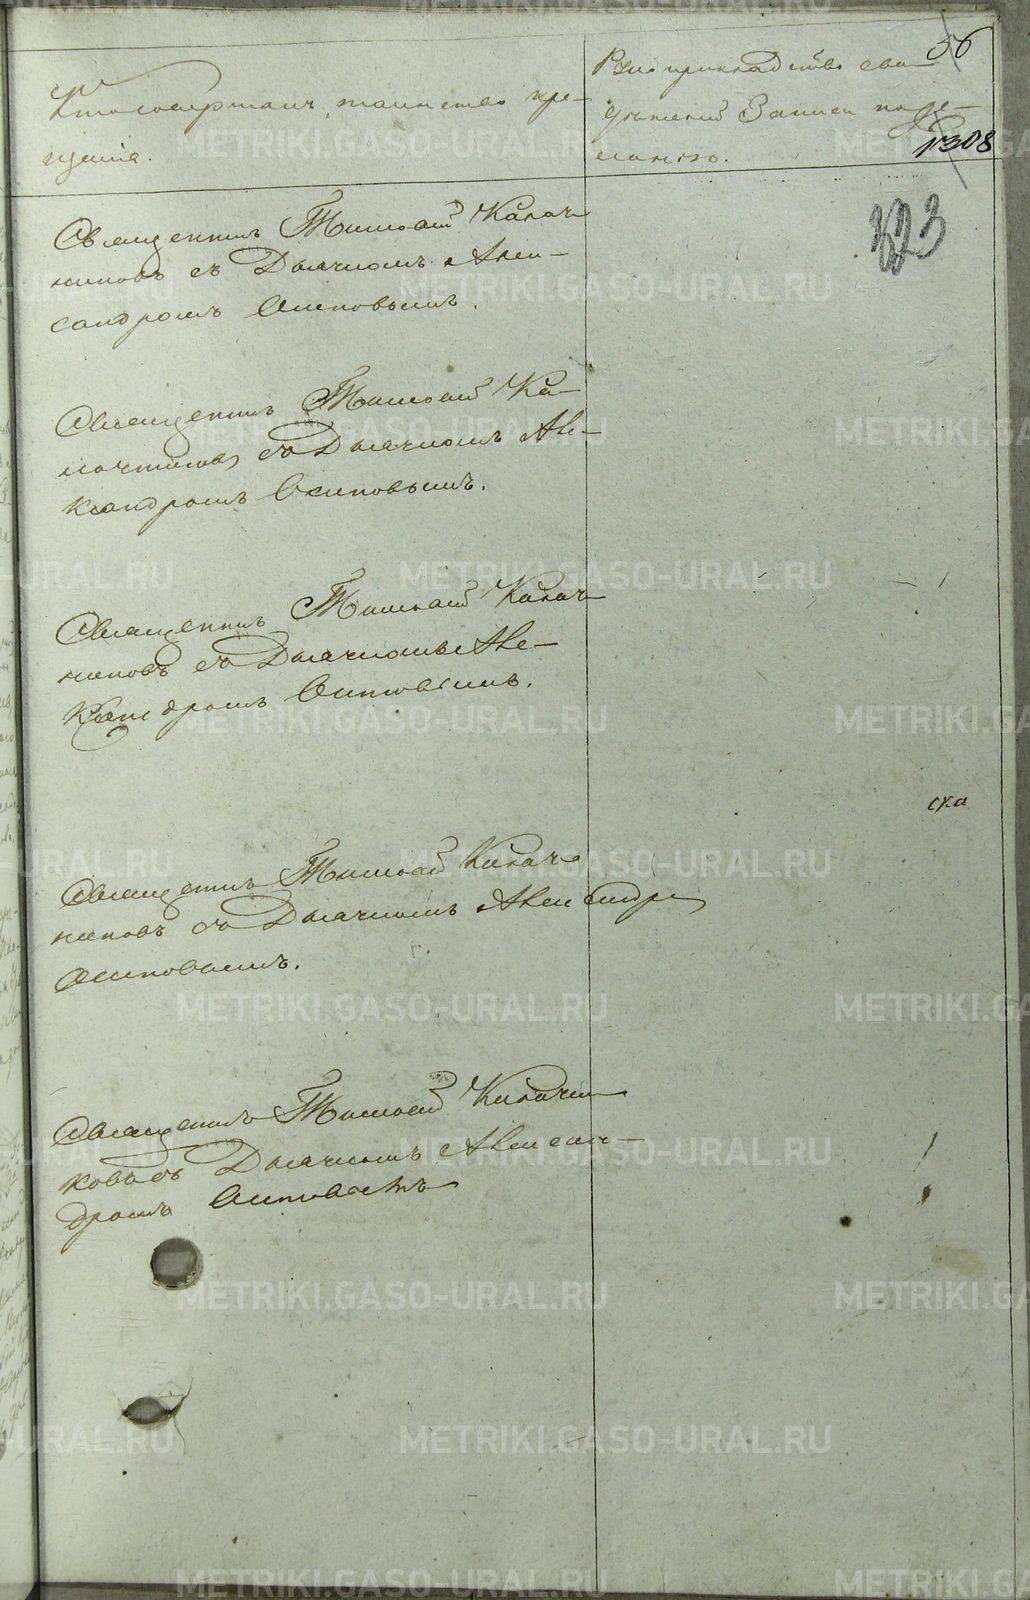 56
1308
323
Кто совершалъ таинство кре-
щенія.
Рукоприкладство сви-
дѣтелей Записи по же-
ланію.
Священникъ Тимофей Калач-
никовъ съ Дьячкомъ Алек-
сандромъ Осиповымъ.
Священникъ Тимофей Ка-
лачниковъ съ Дьячкомъ Але-
ксандромъ Осиповымъ.
Священникъ Тимофей Калач-
никовъ съ Дьячкомъ Але-
ксандромъ Осиповымъ.
Священникъ Тимофей Калач-
никовъ съ Дьячкомъ Александр
Осиповымъ.
Священникъ Тимофей Калачни-
ковъ съ Дьячкомъ Алексан-
дромъ Осиповымъ
METRIKI.GASO-URAL.RU